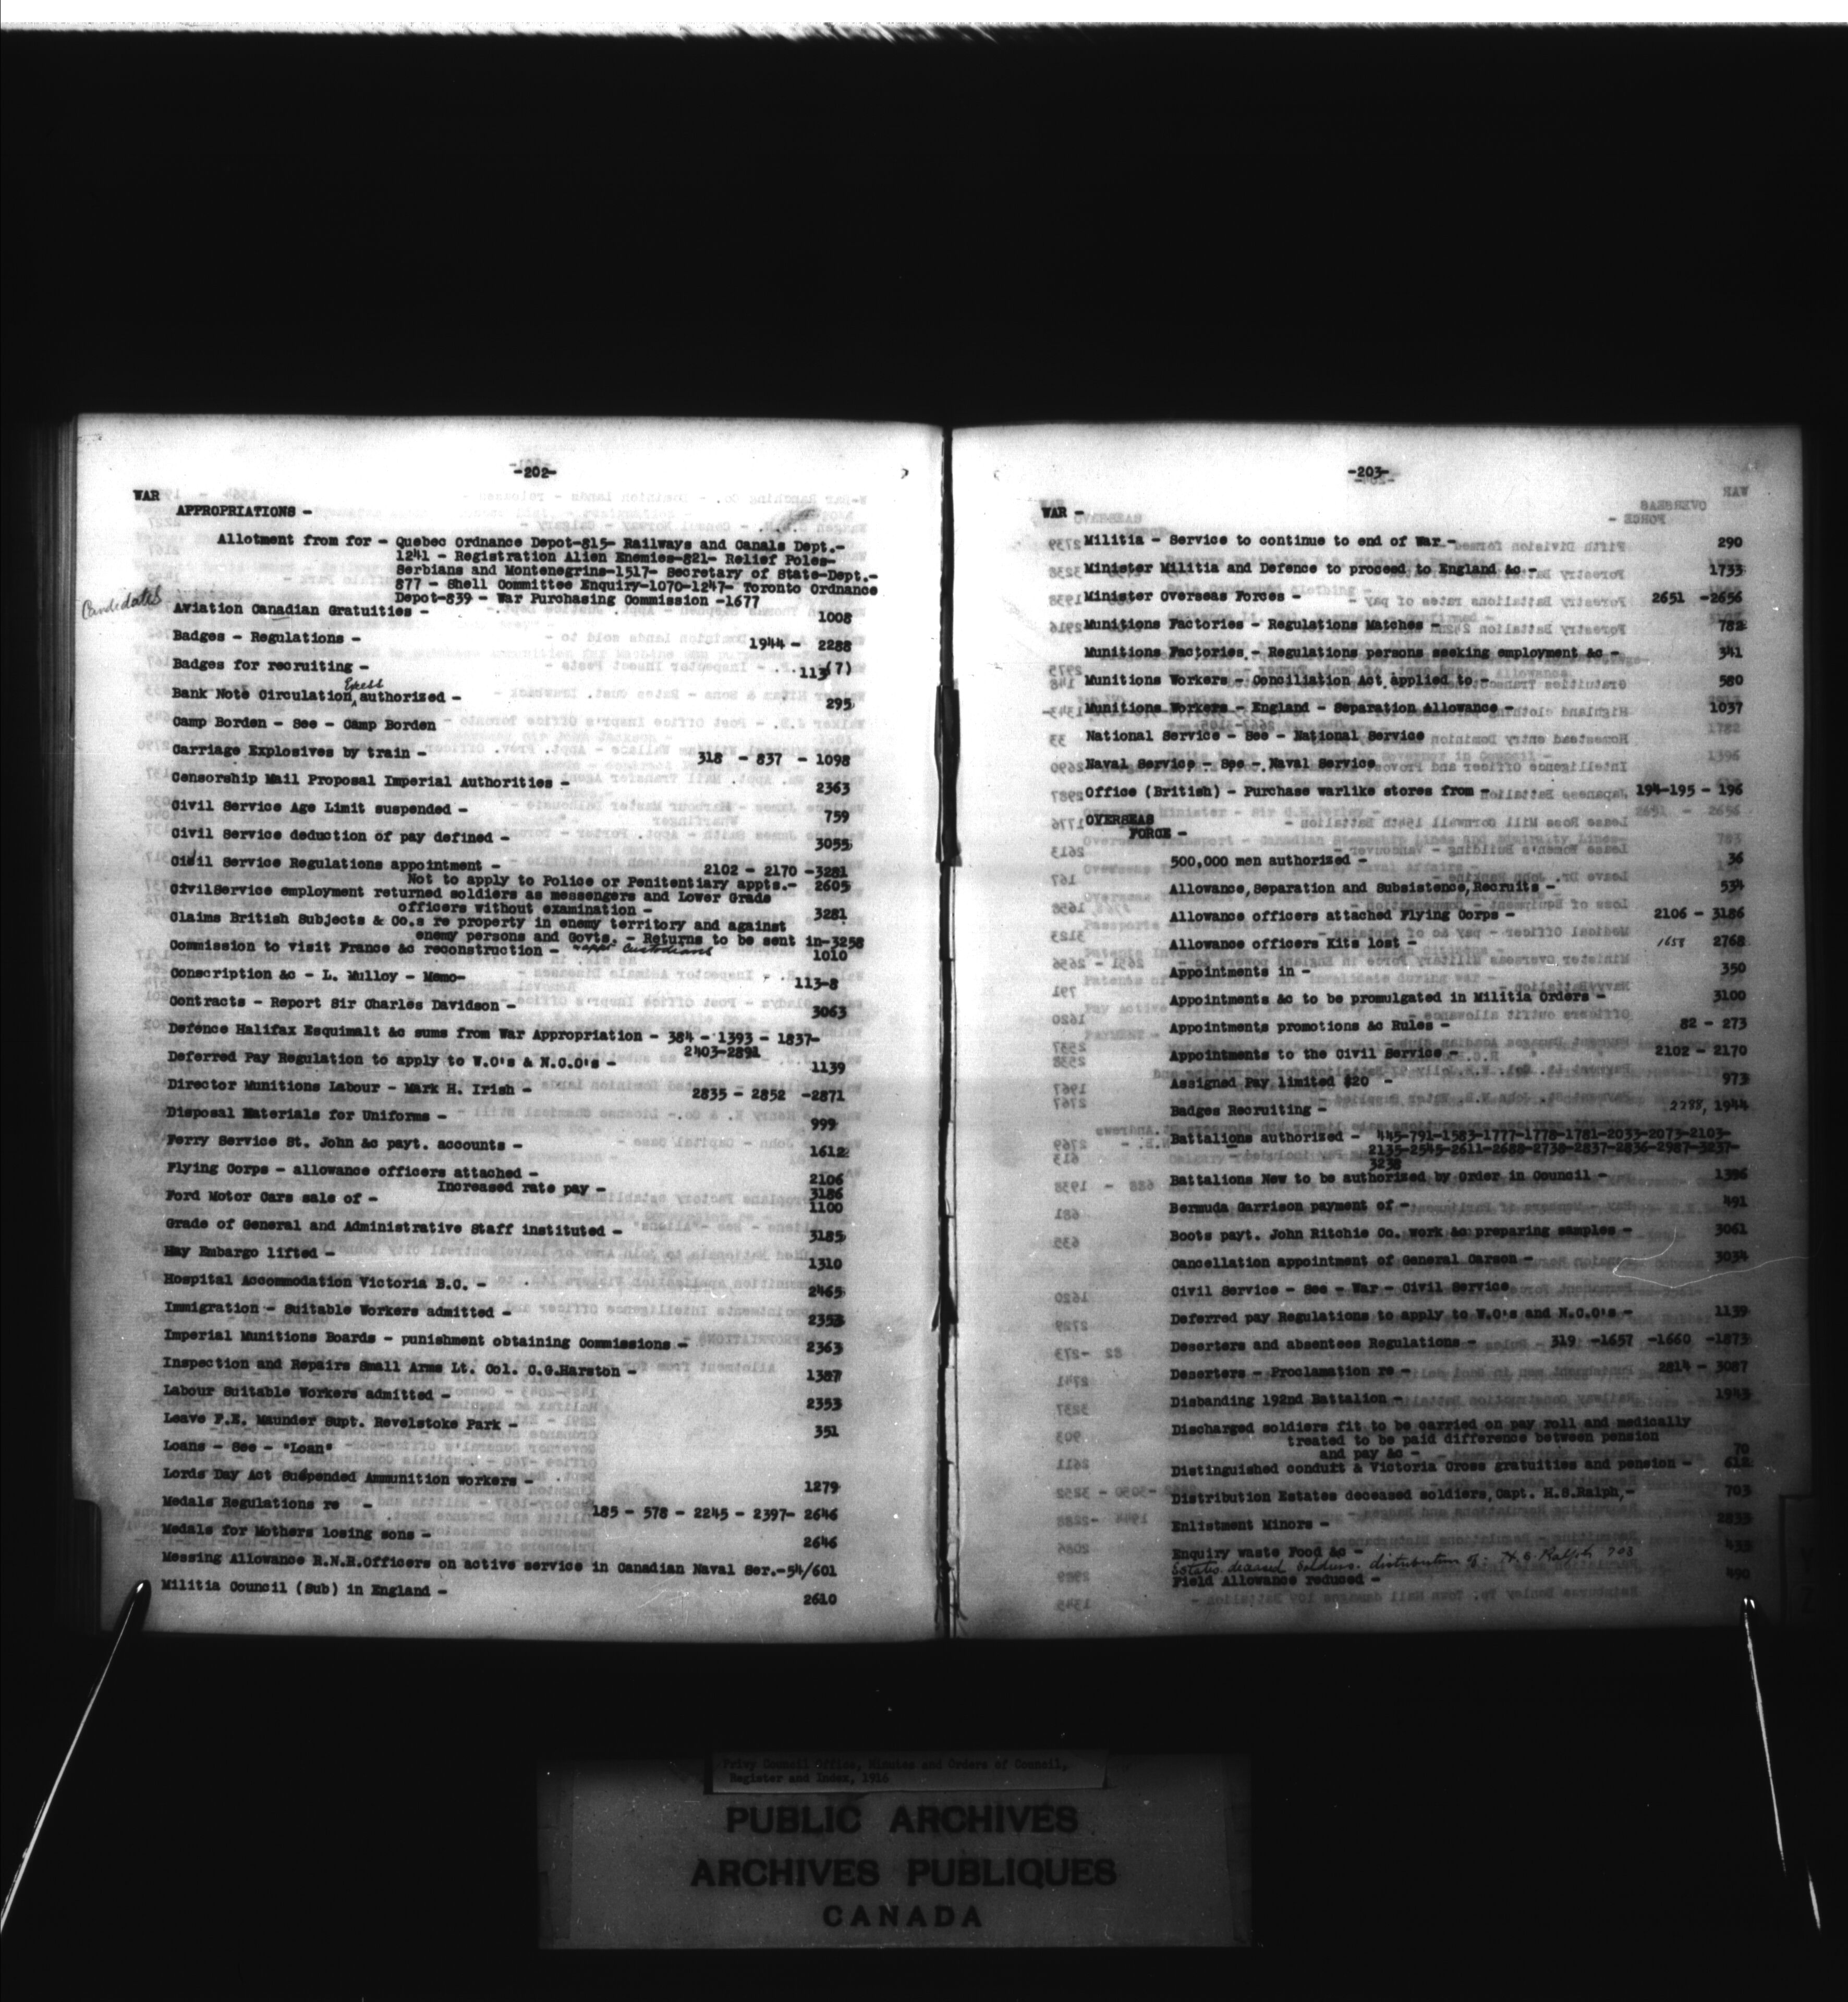 -202-
WAR
APPROPRIATIONS -
Allotment from for - Quebec Ordnance Depot-815- Railways and Canals Dept.-
1241 - Registration Alien Enemies-821- Relief Poles-
Serbians and Montenegrins-1517- Secretary of State-Dept.-
877 - Shell Committee Enquiry-1070-1247- Toronto Ordnance
Depot-839 - War Purchasing Commission -1677
Candidates
Aviation Canadian Gratuities - 1008
Badges - Regulations - 1944 - 2288
Badges for recruiting - 113(7)
Bank Note Circulation Excess authorized - 295
Camp Borden - See - Camp Borden
Carriage Explosives by train - 318 - 837 - 1098
Censorship Mail Proposal Imperial Authorities - 2363
Civil Service Age Limit suspended - 759
Civil Service deduction of pay defined - 3055
Civil Service Regulations appointment - 2102 - 2170 -3281
Not to apply to Police or Penitentiary appts.- 2605
CivilService employment returned soldiers as messengers and Lower Grade
officers without examination - 3281
Claims British Subjects & Co.s re property in enemy territory and against
enemy persons and Govts. - Returns to be sent in-3258
Commission to visit France &c reconstruction - 1010
Conscription &c - L. Mulloy - Memo- 113-8
Contracts - Report Sir Charles Davidson - 3063
Defence Halifax Esquimalt &c sums from War Appropriation - 384 - 1393 - 1837-
2403-2891
Deferred Pay Regulation to apply to W.O's & N.C.O's - 1139
Director Munitions Labour - Mark H. Irish - 2835 - 2852 -2871
Disposal Materials for Uniforms - 999
Ferry Service St. John &c payt. accounts - 1612
Flying Corps - allowance officers attached - 2106
Increased rate pay - 3186
Ford Motor Cars sale of - 1100
Grade of General and Administrative Staff instituted - 3185
Hay Embargo lifted - 1310
Hospital Accommodation Victoria B.C. - 2465
Immigration - Suitable Workers admitted - 2353
Imperial Munitions Boards - punishment obtaining Commissions - 2363
Inspection and Repairs Small Arms Lt. Col. C.G.Harston - 1387
Labour Suitable Workers admitted - 2353
Leave F.E. Maunder Supt. Revelstoke Park - 351
Loans - See - "Loan"
Lords Day Act Suspended Ammunition workers - 1279
Medals Regulations re - 185 - 578 - 2245 - 2397- 2646
Medals for Mothers losing sons - 2646
Messing Allowance R.N.R.Officers on active service in Canadian Naval Ser.-54/601
Militia Council (Sub) in England - 2610
-203-
WAR -
Militia - Service to continue to end of War - 290
Minister Militia and Defence to proceed to England &c - 1733
Minister Overseas Forces - 2651 -2656
Munitions Factories - Regulations Matches - 782
Munitions Factories - Regulations persons seeking employment &c - 341
Munitions Workers - Conciliation Act applied to - 580
Munitions Workers - England - Separation Allowance - 1037
National Service - See - National Service
Naval Service - See - Naval Service
Office (British) - Purchase warlike stores from - 194-195 - 196
OVERSEAS
FORCE -
500,000 men authorized - 36
Allowance,Separation and Subsistence,Recruits - 534
Allowance officers attached Flying Corps - 2106 - 3186
Allowance officers Kits lost - 1658 2768
Appointments in - 350
Appointments &c to be promulgated in Militia Orders - 3100
Appointments promotions &c Rules - 82 - 273
Appointments to the Civil Service - 2102 - 2170
Assigned Pay limited $20 - 973
Badges Recruiting - 2288, 1944
Battalions authorized - 445-791-1583-1777-1778-1781-2033-2073-2103-
2135-2545-2611-2688-2738-2837-2836-2987-3237-
3238
Battalions New to be authorized by Order in Council - 1396
Bermuda Garrison payment of - 491
Boots payt. John Ritchie Co. work &c preparing samples - 3061
Cancellation appointment of General Carson - 3034
Civil Service - See - War - Civil Service
Deferred pay Regulations to apply to W.O's and N.C.O's - 1139
Deserters and absentees Regulations - 319 -1657 -1660 -1873
Deserters - Proclamation re - 2814 - 3087
Disbanding 192nd Battalion - 1943
Discharged soldiers fit to be carried on pay roll and medically
treated to be paid difference between pension
and pay &c - 70
Distinguished conduct & Victoria Cross gratuities and pension - 612
Distribution Estates deceased soldiers,Capt. H.S.Ralph,- 703
Enlistment Minors - 2833
Enquiry waste Food &c - 433
Estates deceased Soldiers. distribution of: H.S. Ralph 703
Field Allowance reduced - 490
Privy Council Office, Minutes and Orders of Council,
Register and Index, 1916
PUBLIC ARCHIVES
ARCHIVES PUBLIQUES
CANADA